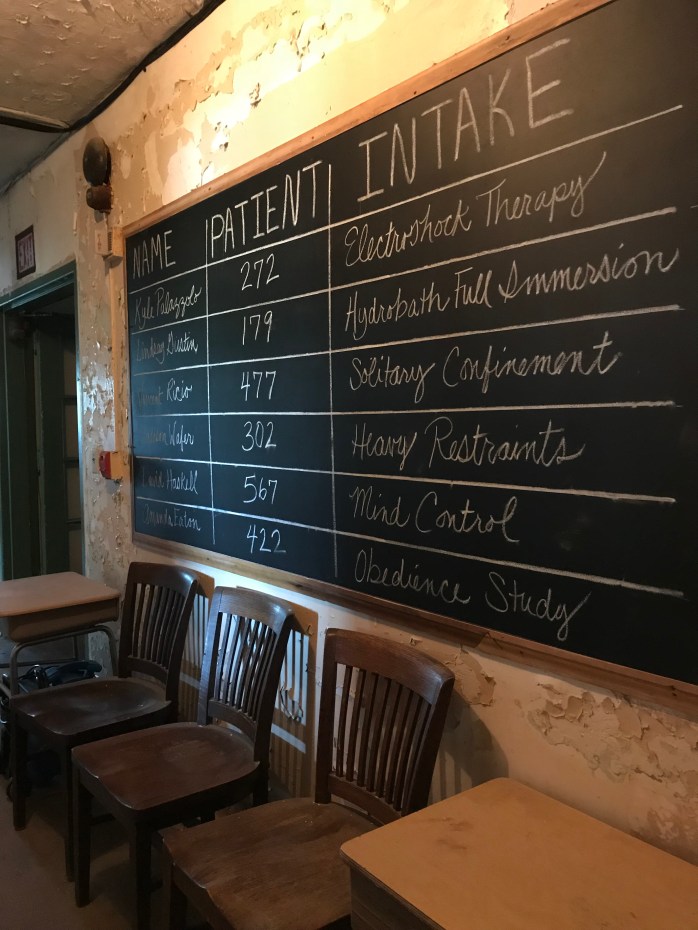 NAME PATIENT INTAKE
Kyle Palazzolo 272 Electroshock Therapy
Lindsay Gustin 179 Hydrobath Full Immersion
Ricio 477 Solitary Confinement
Wafer 302 Heavy Restraints
David Haskell 567 Mind Control
Amanda Eaton 422 Obedience Study